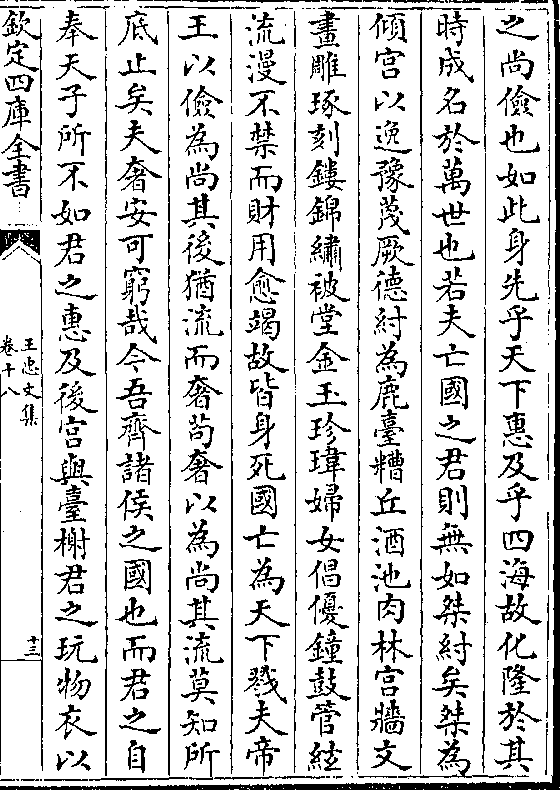 之尚儉也如此身先乎天下惠及乎四海故化隆於其
時成名於萬世也若夫亡國之君則無如桀紂矣桀為
傾宮以逸豫蔑厥德紂為鹿臺糟丘酒池肉林宮牆文
畫雕琢刻鏤錦繡被堂金玉珍瑋婦女倡優鐘鼓管絃
流漫不禁而財用愈竭故皆身死國亡為天下戮夫帝
王以儉為尚其後猶流而奢茍奢以為尚其流莫知所
底止矣夫奢安可窮哉今吾齊諸侯之國也而君之自
奉天子所不如君之惠及後宮與臺榭君之玩物衣以
欽定四庫全書
王忠文集
卷十八
十三